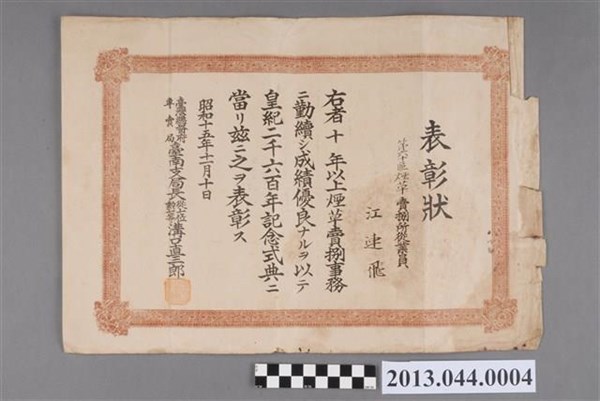 表彰狀
煙草賣捌所從業員
江建飛
右者十年以上煙草賣捌事務
ニ勤續シ成績優良ナルヲ以テ
皇紀二千六百年記念式典ニ
當リ玆ニ之ヲ表彰ス
昭和十五年十一月十日
臺灣總督府
專賣局
臺南支局長
溝口直三郎
2013.044.0004